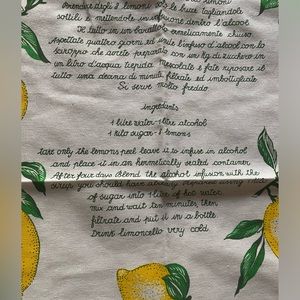 Prendere degli 8 limoni solo
sottili e mettendole infusione dentro l'alcool
il tutto in un barattolo ermeticamente chiuso
Aspettate quattro giorni ed unite l'infuso d'alcool con lo
sciroppo che avrete preparato con un kg di zucchero in
un litro d'acqua tiepida Mescolate e fate riposare il
tutto una decina di minuti filtrate ed imbottigliate
Si serve molto freddo
Ingredients
1 litre water - 1 litre alcohol
1 kilo sugar - 8 lemons
take only the lemons peel leave it to infuse in alcohol
and place it in an hermetically sealed container
After four days blend the alcohol infusion with the
syrup you should have already prepared using 1 kilo
of sugar into 1 litre of hot water
mix and wait ten minutes then
filtrate and put it in a bottle
Drink limoncello very cold